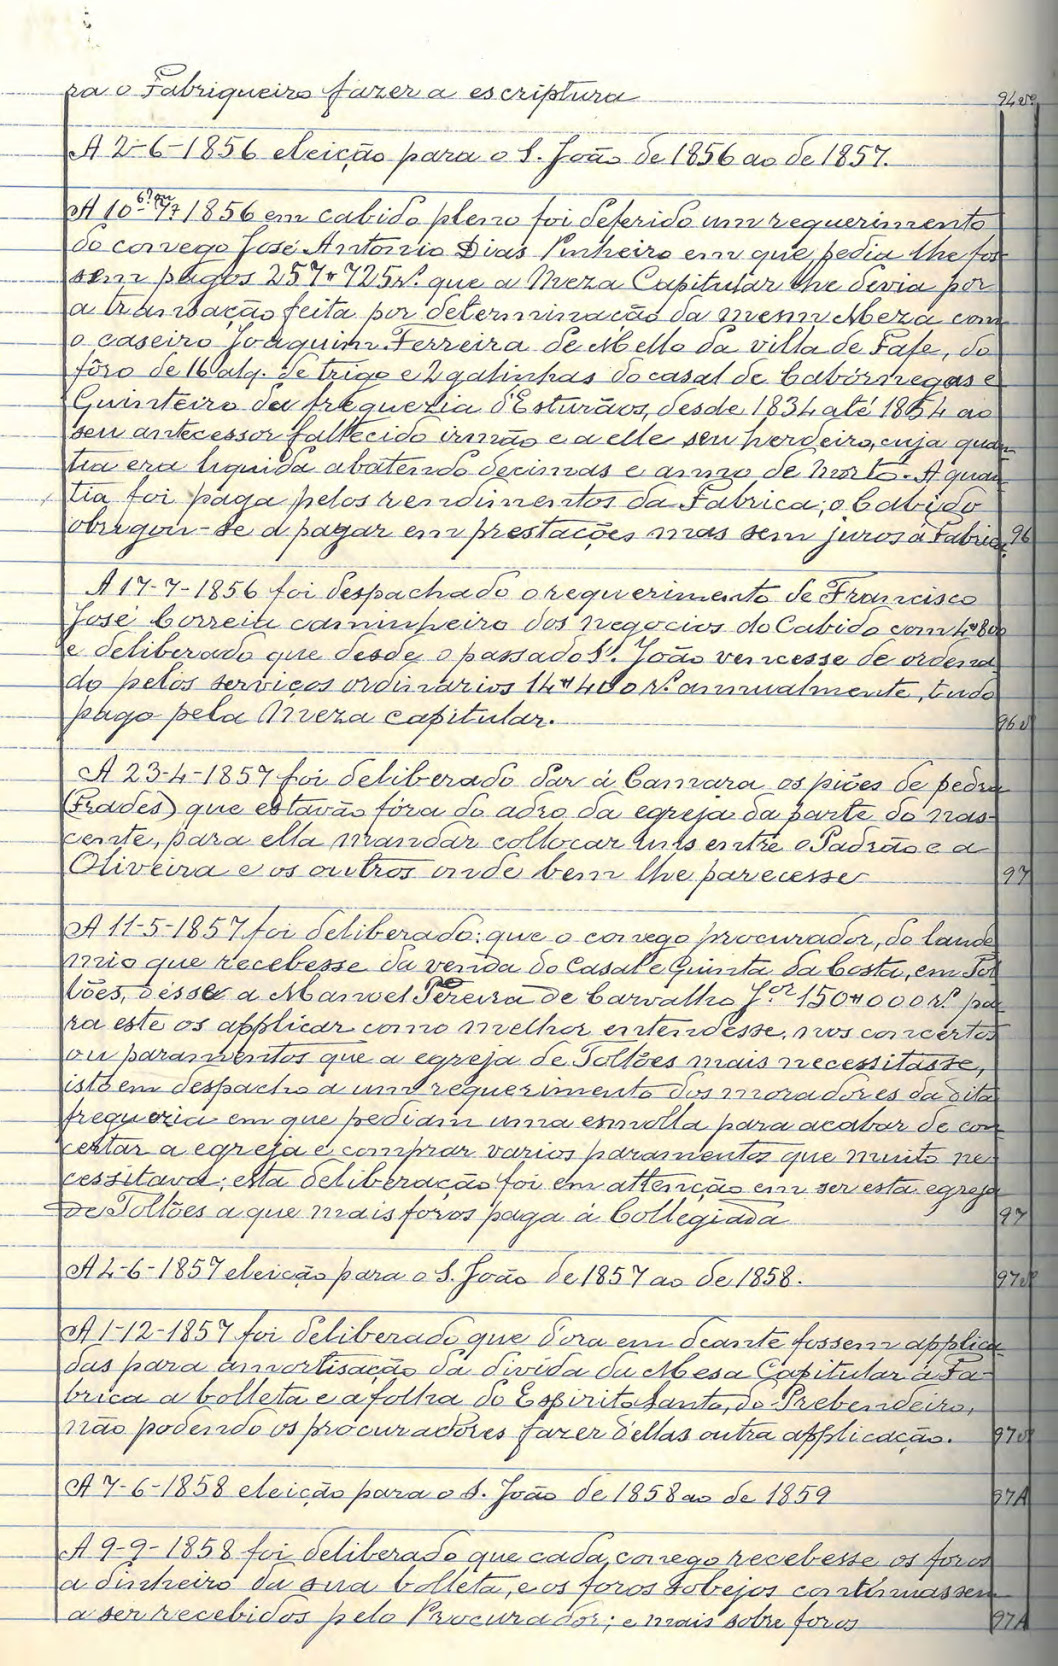 ra o Fabriqueiro fazer a escriptura 94vº
A 2-6-1856 eleição para o S. João de 1856 ao de 1857.
A 10 1856 em cabido pleno foi deferido um requerimento
do conego José Antonio Dias Pinheiro em que pedia lhe fos-
sem pagos 257#725rs. que a Meza Capitular lhe devia por
a transação feita por determinação da mesma Meza com
o caseiro Joaquim Ferreira de Mello da villa de Fafe, do
fôro de 16 alq. de trigo e 2 galinhas do casal de Cabórnegas e
Quinteiro da freguezia d'Esturãos, desde 1834 até 1854 ao
seu antecessor fallecido irmão e a elle seu herdeiro, cuja quan-
tia era liquida abatendo decimas e anno de morto. A quan-
tia foi paga pelos rendimentos da Fabrica; o Cabido
obrigou-se a pagar em prestações mas sem juros á Fabrica. 96
A 17-7-1856 foi despachado o requerimento de Francisco
José Correia caminheiro dos negocios do Cabido com 4#800
e deliberado que desde o passado S. João vencesse de ordena-
do pelos serviços ordinarios 14#400 rs. annualmente, tudo
pago pela Meza capitular. 96v
A 23-4-1857 foi deliberado dar á Camara os piões de pedra
(Frades) que estavão fóra do adro da egreja da parte do nas-
cente, para ella mandar collocar uns entre o Padrão e a
Oliveira e os outros onde bem lhe parecesse 97
A 11-5-1857 foi deliberado: que o conego procurador, do laude-
mio que recebesse da venda do Casal e Quinta da Costa, em Tol-
lões, désse a Manoel Pereira de Carvalho Jor. 150#000 rs. pa-
ra este os applicar como melhor entendesse, nos concertos
ou paramentos que a egreja de Toltões mais necessitasse,
isto em despacho a um requerimento dos moradores da dita
freguezia em que pediam uma esmolla para acabar de con-
certar a egreja e comprar varios paramentos que muito ne-
cessitava; esta deliberação foi em attenção em ser esta egreja
de Toltões a que mais foros paga á Collegiada 97
A 2-6-1857 eleição para o S. João de 1857 ao de 1858. 97vº
A 1-12-1857 foi deliberado que d'ora em deante fossem applica-
das para amortisação da divida da Mesa Capitular á Fa-
brica a bolleta e a folha do Espirito Santo, do Prebendeiro,
não podendo os procuradores fazer d'ellas outra applicação. 97vº
A 7-6-1858 eleição para o S. João de 1858 ao de 1859 97A
A 9-9-1858 foi deliberado que cada conego recebesse os foros
a dinheiro da sua bolleta, e os foros sobejos continuassem
a ser recebidos pelo Procurador; e mais sobre foros 97A